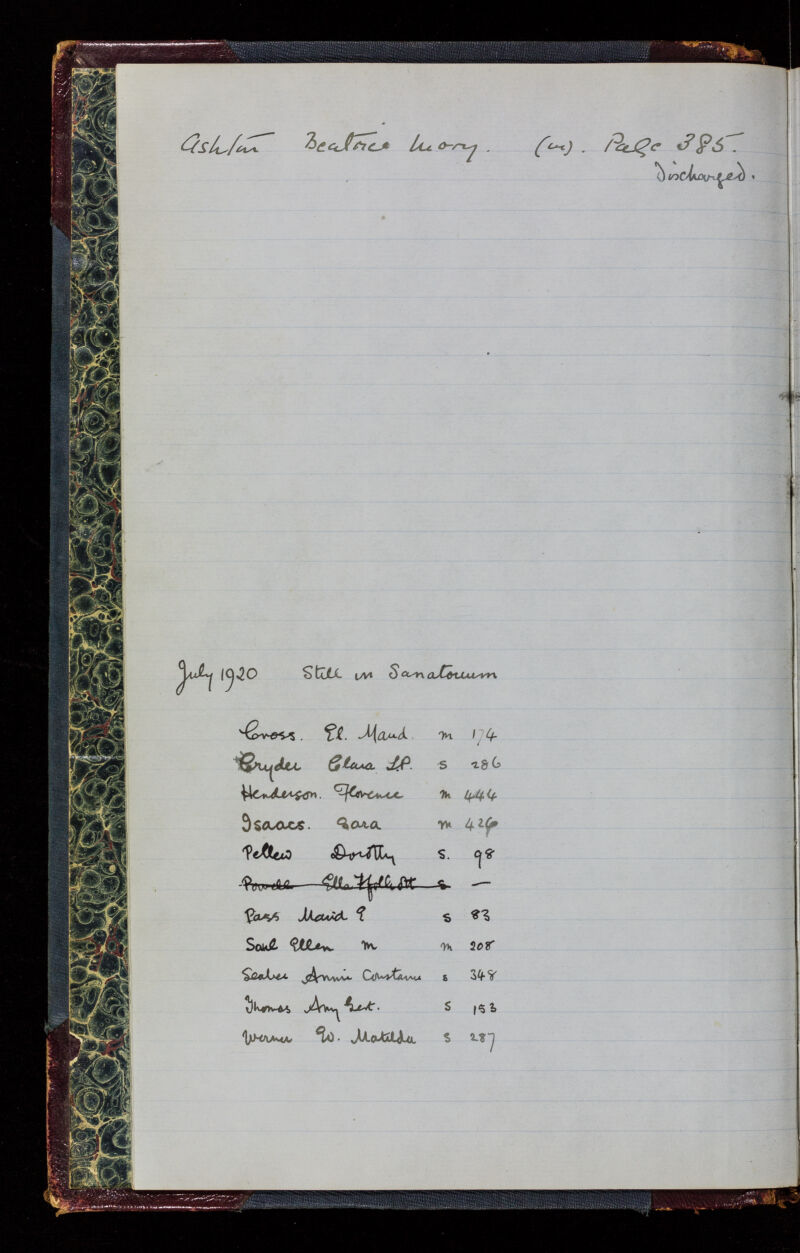 Ashton Beatrice Mary. (m). Page 385.
Discharged.
July 1920 Still in Sanatorium
Cross. El. Maud. m 174
Cryder Clara L.P. s 286
Henderson. Florence m 444
Isaacs. Sara m 426
Pellew Dorothy s. 98
Powell Ella Ffolliott s —
Pass Maud E s 83
Saul Ellen m m 208
Seaber Annie Constance s 348
Thomas Amy Gert. s 153
Werner Ed. Matilda s 287